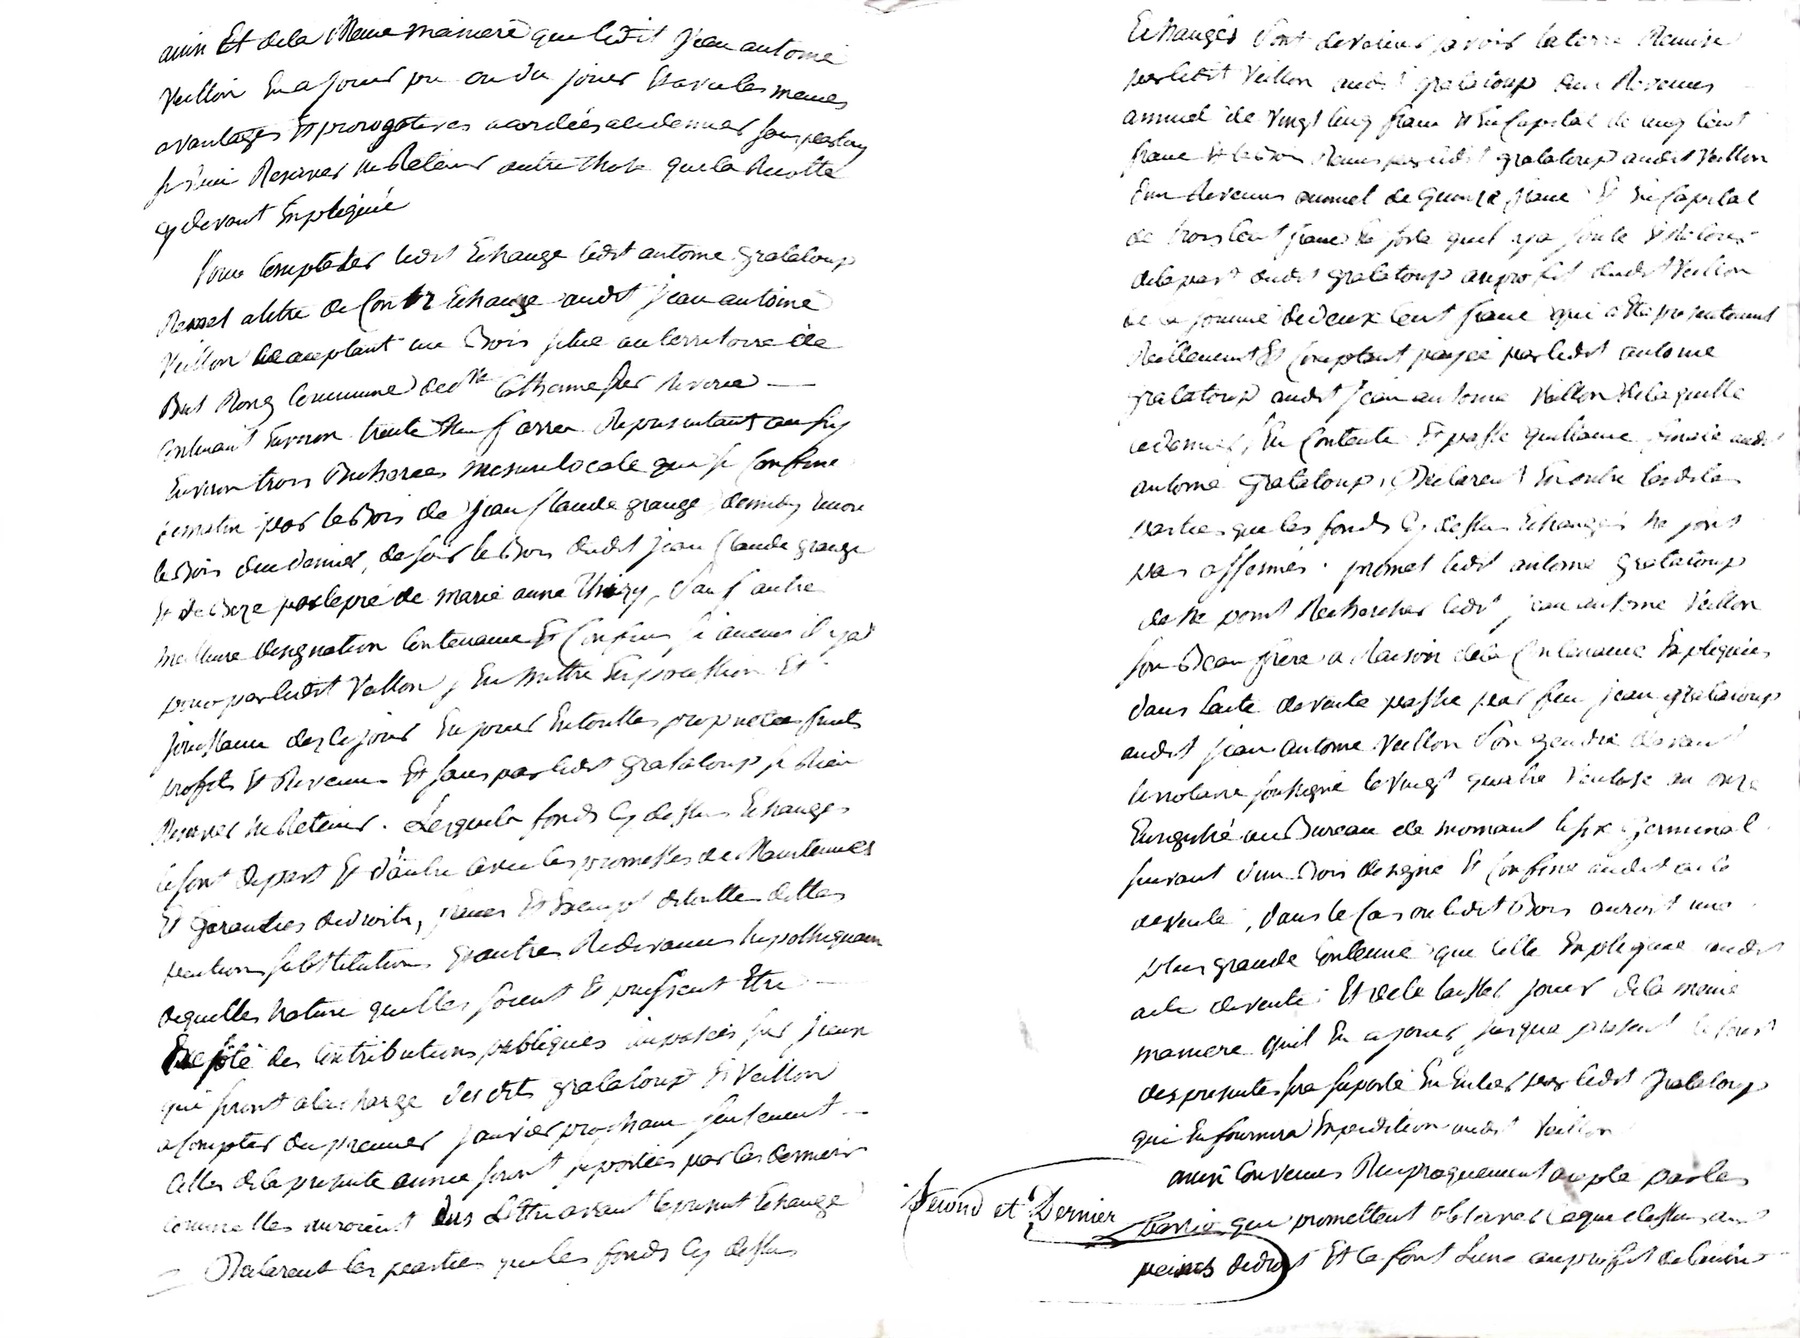 ainsi Et de la Meme maniere que ledit Jean antoine
Veillon En a Jouir pu ou du jouir Et avec les memes
avantages Et prorogatives acordées a ce dernier sans par luy
se rien Reserver ne Retenir autre chose que la Recolte
cy devant Expliquée
Pour Compte des ledit Echange ledit antoine grataloup
Remet a titre de Contre Echange audit Jean antoine
Veillon acceptant un Bois situé au territoire de
Commune de Ste Catherine sur Riverie
Contenant Environ trente neuf ares Representant
Environ trois Bicherees mesure locale qui se Confine
de matin par le Bois de Jean Claude grange, de midy Encore
le Bois du dernier, de soir le Bois dudit Jean Claude grange
Et de Bize par le pré de marie anne Thizy, sauf autre
meilleure designation Contenance Et Confins si aucuns il y a
pour par ledit Veillon, s'En mettre En possession Et
Jouissance dez ce jour En jouir En touttes proprietés fruits
profits Et Revenus Et sans par ledit grataloup se Rien
Reserver ne Retenir. Lesquels fonds Cy dessus Echangés
le sont de part Et d'autre avec les promesses de Maintenues
Et Garanties de droits, francs Et Exempt de toutte dettes
pentions substitutions Et autres Redevances hypothequaires
de quelles Nature quelles soient Et puissent Etre
Excepté des Contributions publiques imposées sur jceux
qui seront a la charge desdits grataloup Et Veillon
a Compter du premier janvier prochain seulement
Celles de la presente année seront suportées par les derniers
comme Elles auroient dus L'Etre avant le present Echange
Declarent les parties que les fonds Cy dessus
Echangés Sont de valeur savoir la terre Remise
par ledit Veillon audit grataloup d'un Revenus
annuel de Vingt cinq franc Et En Capital de cinq Cent
franc Et le Bois Remis par ledit grataloup audit Veillon
d'un Revenus annuel de Quinze franc Et En Capital
de trois Cent francs de sorte quil y a soulte Et Retour
de la part dudit grataloup au profit dudit Veillon
de la somme de deux Cent franc qui a Eté presentement
Reellement Et Comptant payée par ledit antoine
grataloup audit Jean antoine Veillon de laquelle
ce dernier, Est Contente Et passe quittance finale audit
antoine grataloup, Declarent En outre lesdites
parties que les fonds Cy dessus Echangés ne sont
pas affermés. promet ledit antoine grataloup
de ne point Rechercher ledit Jean antoine Veillon
son Beau frere a Raison de la Contenance Expliquée
dans l'acte de vente passée par feu Jean grataloup
audit Jean antoine Veillon son gendre devant
le notaire soussigné le vingt quatre Ventose an onze
Enregistré au Bureau de mornant le six Germinal
suivant d'un Bois designé Et Confiné audit acte
de vente, dans le Cas ou ledit Bois auroit une
plus grande Contenue que Celle Expliquée audit
acte de vente Et de le laisser jouir de la meme
maniere quil En a jouir jusqua present le Cout
des presentes sera suporté En Entier par ledit Grataloup
qui En fournira Expedition audit Veillon
ainsi Convenus Reciproquement accepté par les
Second et Dernier
parties qui promettent observer Ce que dessus aux
peines de droit Et Ce font L'une au profit de L'autre